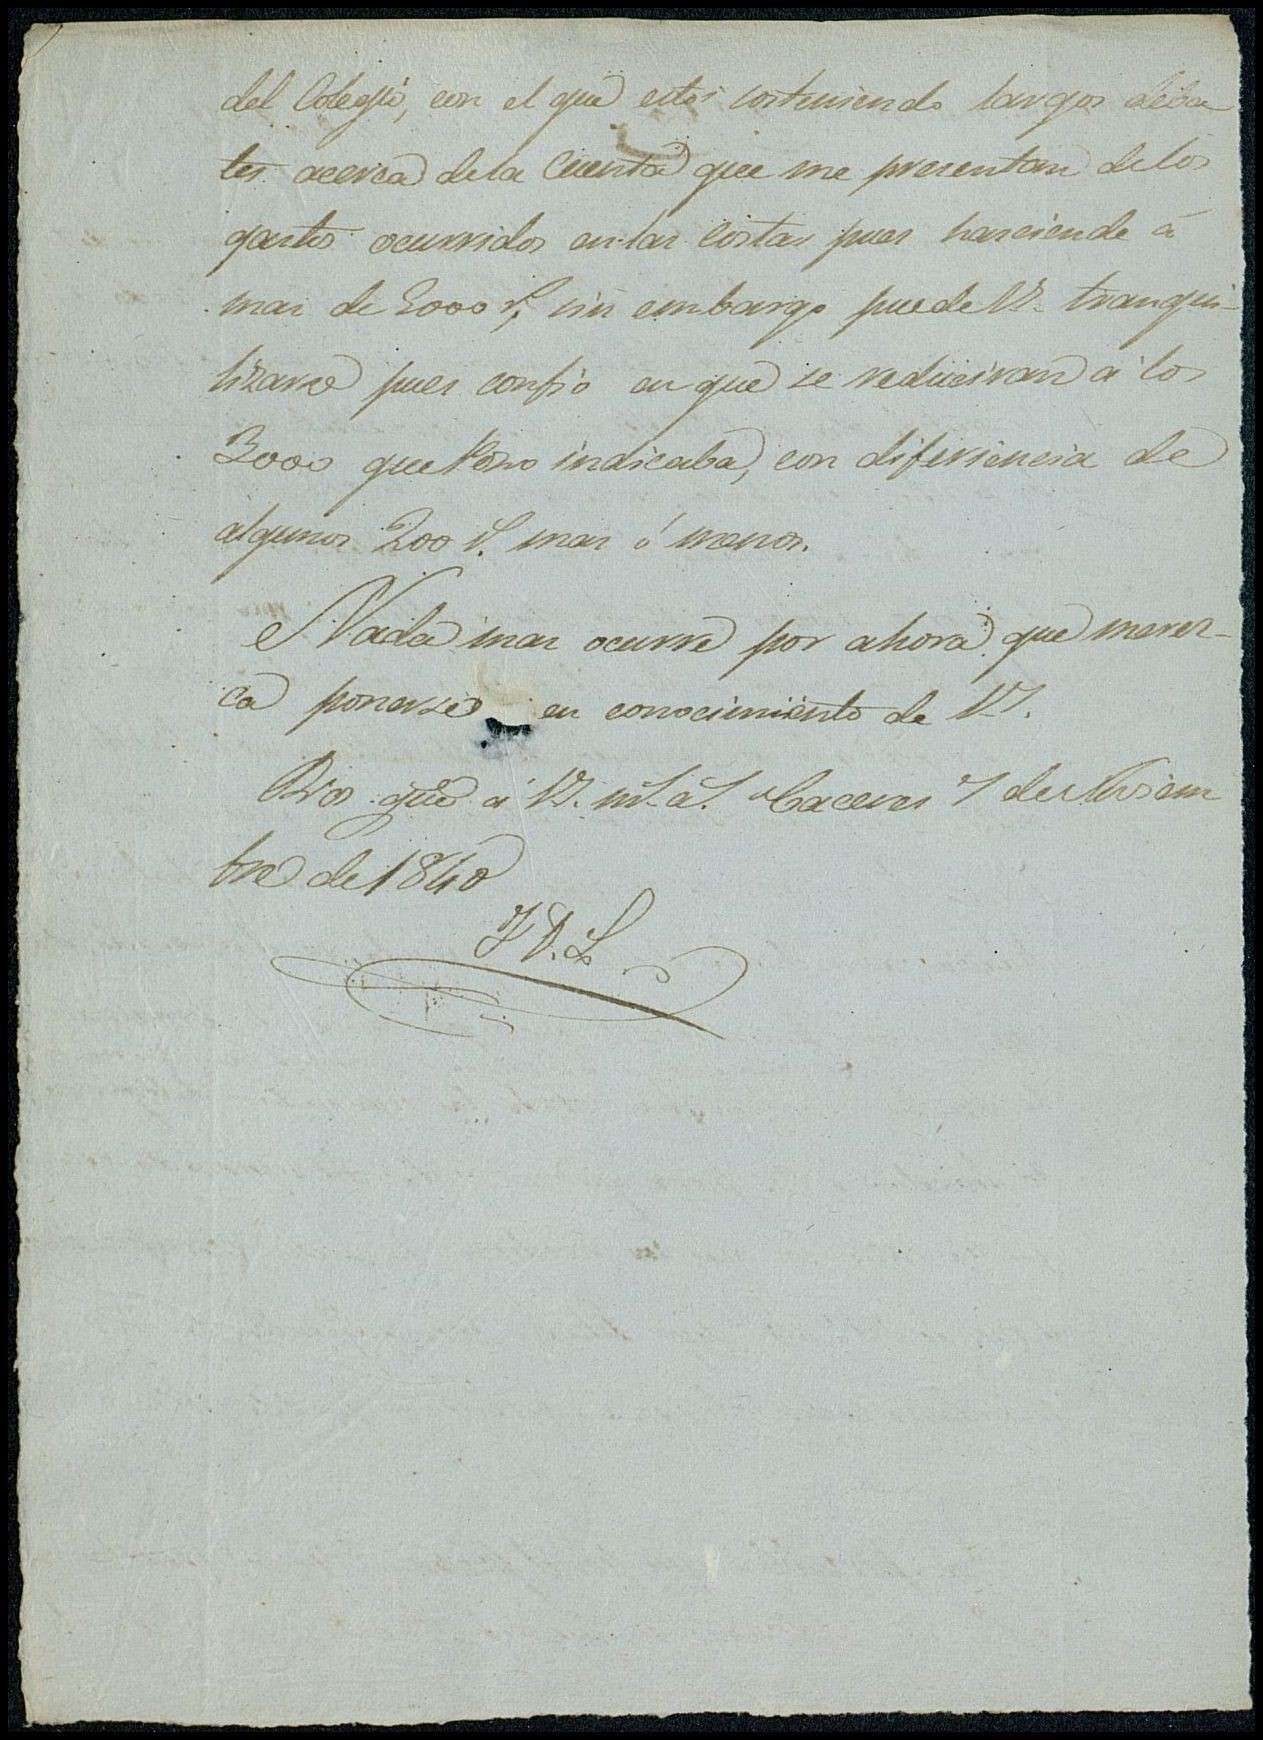 del Colegio, con el que estoi costeniendo largos deba
tes acerca de la Cuenta que me presentan de los
gastos ocurridos en las costas pues hasciende á
mas de 2000 r.^s, sin embargo puede V. tranqui-
lizarse pues confio en que se reduciran á los
3000 que indicaba, con diferiencia de
algunos 200 r.^s mas ó menos.
Nada mas ocurre por ahora que meres-
ca ponerse en conocimiento de V.
Dios gue á V. m.^s a.^s Caceres 7 de Noviem
bre de 1840